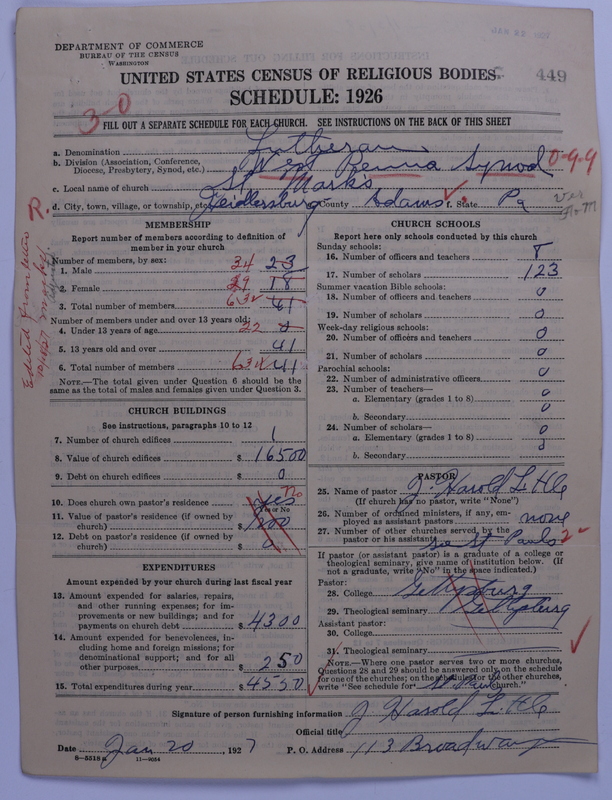 DEPARTMENT OF COMMERCE
BUREAU OF THE CENSUS
WASHINGTON
449
UNITED STATES CENSUS OF RELIGIOUS BODIES
SCHEDULE: 1926
3-0
FILL OUT A SEPARATE SCHEDULE FOR EACH CHURCH. SEE INSTRUCTIONS ON THE BACK OF THIS SHEET
a. Denomination Lutheran
b. Division (Association, Conference, Diocese, Presbytery, Synod, etc.) West Penna Synod 0-9-9
c. Local name of church St Marks
d. City, town, village, or township, etc. Heidlersburg e. County Adams f. State Pa
R.
MEMBERSHIP
Report number of members according to definition of member in your church
Number of members, by sex:
1. Male 34 23
2. Female 29 18
3. Total number of members 63 41
Number of members under and over 13 years old:
4. Under 13 years of age 22 0
5. 13 years old and over 41
6. Total number of members 63 41
NOTE.—The total given under Question 6 should be the same as the total of males and females given under Question 3.
CHURCH BUILDINGS
See instructions, paragraphs 10 to 12
7. Number of church edifices 1
8. Value of church edifices $ 16500
9. Debt on church edifices $ 0
10. Does church own pastor's residence yes no
Yes or No
11. Value of pastor's residence (if owned by church) $
12. Debt on pastor's residence (if owned by church) $ 0
EXPENDITURES
Amount expended by your church during last fiscal year
13. Amount expended for salaries, repairs, and other running expenses; for improvements or new buildings; and for payments on church debt $ 4300
14. Amount expended for benevolences, including home and foreign missions; for denominational support; and for all other purposes $ 250
15. Total expenditures during year $ 4550
CHURCH SCHOOLS
Report here only schools conducted by this church
Sunday schools:
16. Number of officers and teachers 8
17. Number of scholars 123
Summer vacation Bible schools:
18. Number of officers and teachers 0
19. Number of scholars 0
Week-day religious schools:
20. Number of officers and teachers 0
21. Number of scholars 0
Parochial schools:
22. Number of administrative officers 0
23. Number of teachers—
a. Elementary (grades 1 to 8) 0
b. Secondary 0
24. Number of scholars—
a. Elementary (grades 1 to 8) 0
b. Secondary 0
PASTOR
25. Name of pastor J. Harold Little
(If church has no pastor, write "None")
26. Number of ordained ministers, if any, employed as assistant pastors none
27. Number of other churches served by the pastor or his assistant see St Pauls 2
If pastor (or assistant pastor) is a graduate of a college or theological seminary, give name of institution below. (If not a graduate, write "No" in the space indicated.)
Pastor:
28. College Gettysburg
29. Theological seminary Gettysburg
Assistant pastor:
30. College
31. Theological seminary
NOTE.—Where one pastor serves two or more churches, Questions 28 and 29 should be answered only on the schedule for one of the churches; on the schedules for the other churches, write "See schedule for St Pauls church."
Signature of person furnishing information J Harold Little
Official title
Date Jan 20, 1927 P. O. Address 113 Broadway
8—5518a 11—9054